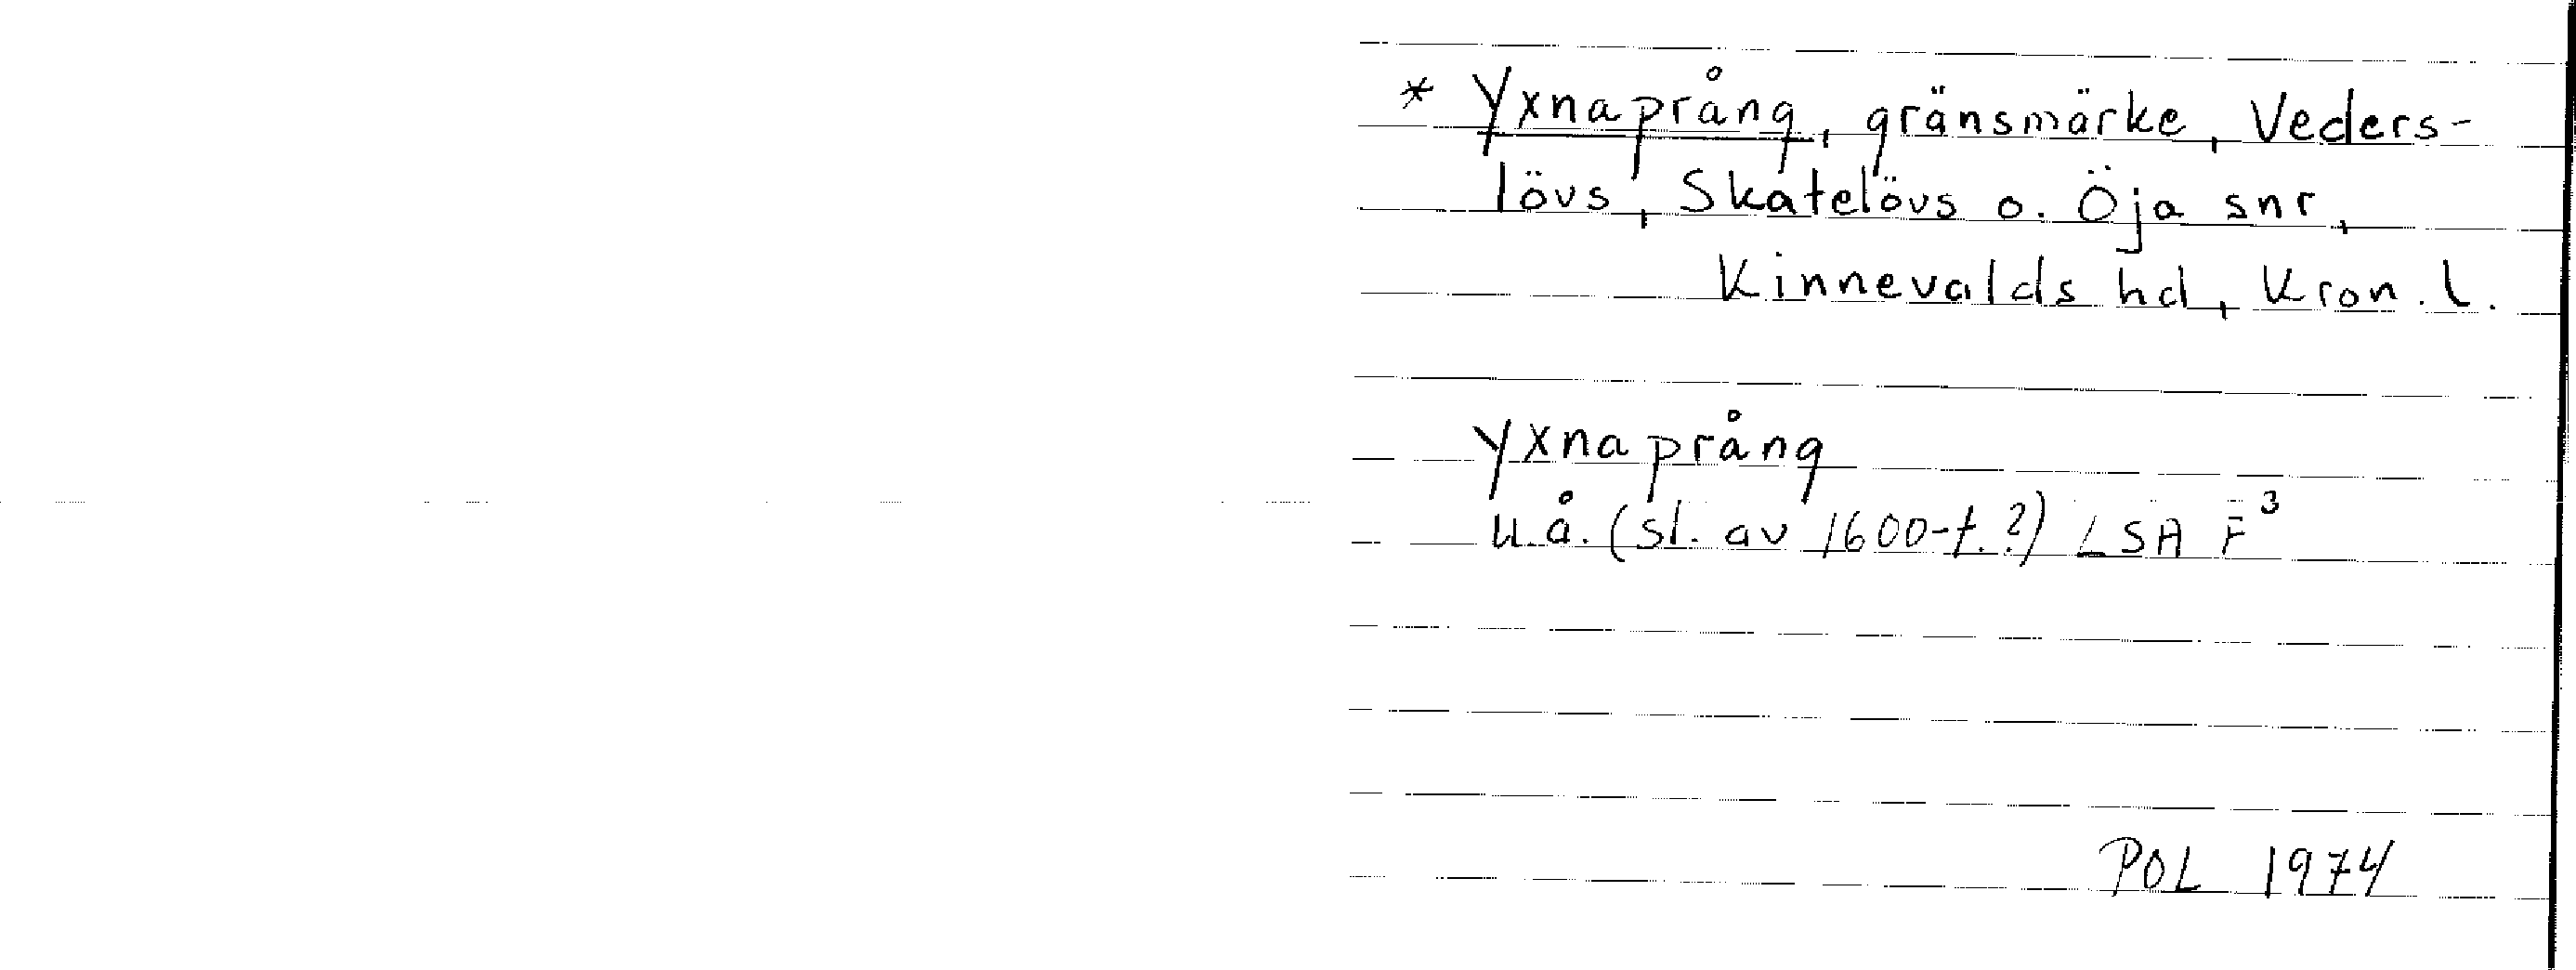 * Yxnaprång, gränsmärke, Veders-
lövs, Skatelövs o. Öja snr,
Kinnevalds hd, Kron. l.
Yxnaprång
u.å. (sl. av 1600-t.?) LSA F³
POL 1974